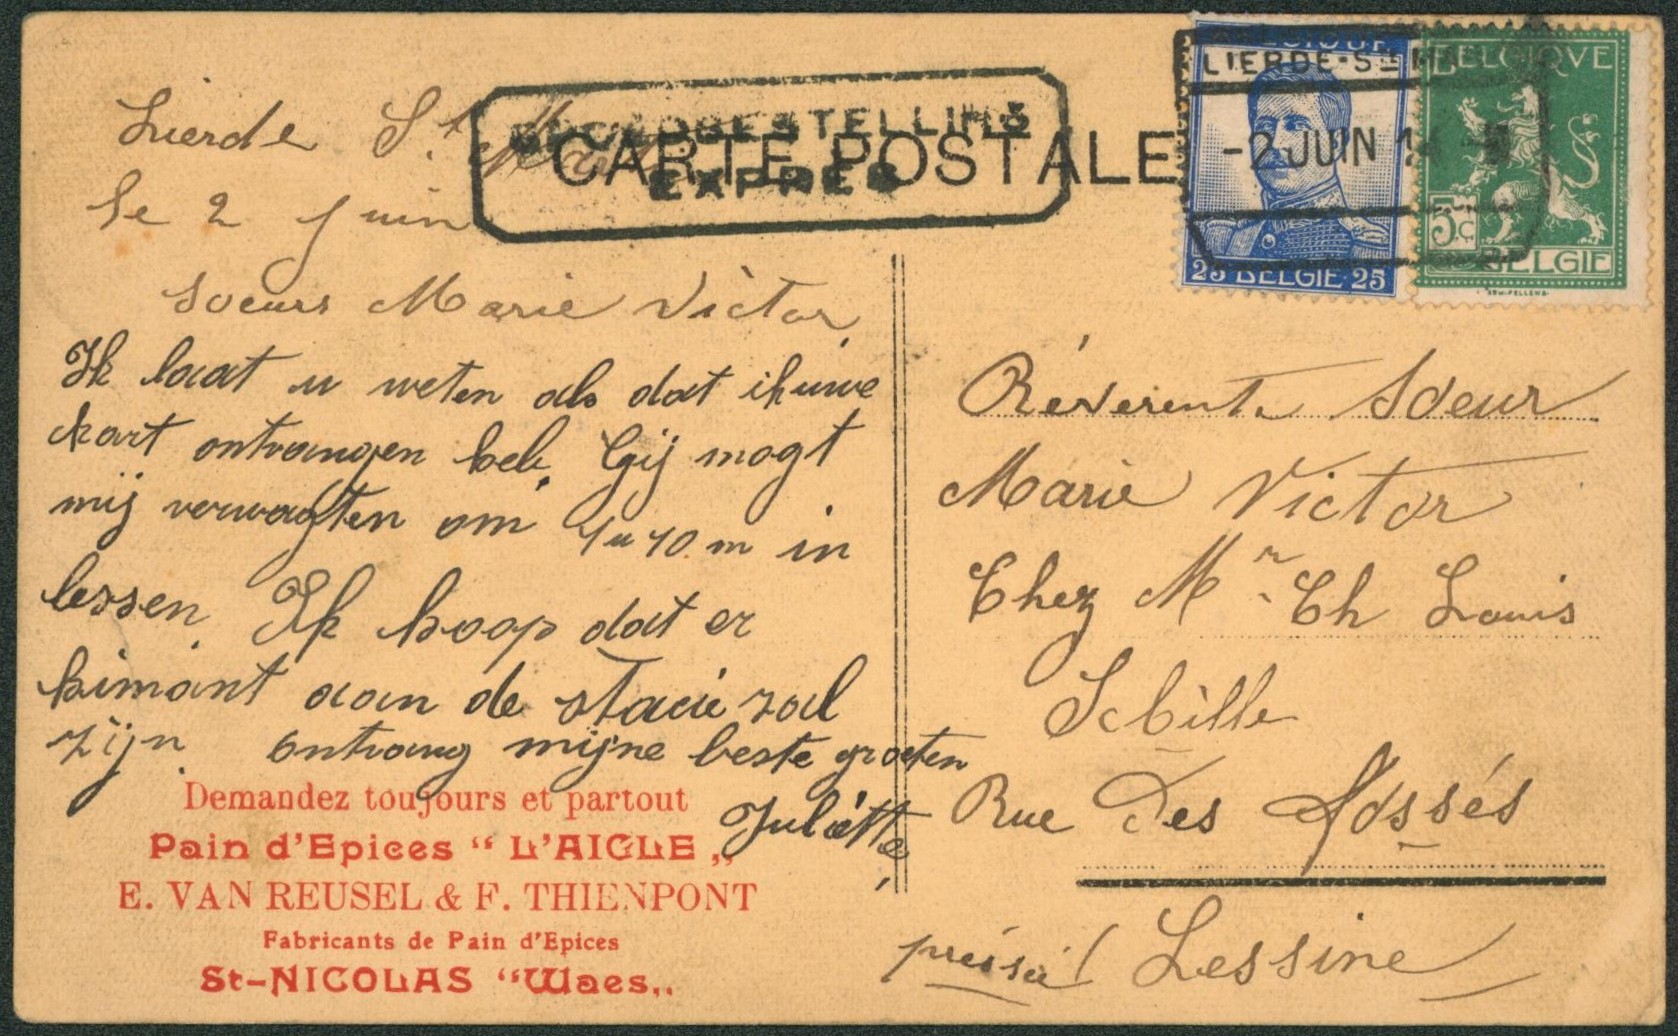 CARTE POSTALE
SPOEDBESTELLING
EXPRES
BELGIQUE
25 BELGIE 25
LIERDE-Ste
-2 JUIN 14
BELGIQVE
5c
BELGIE
Lierde St. Mart
le 2 juin
Soeurs Marie Victor
Ik laat u weten als dat ik uwe
kart ontvangen heb. Gij mogt
mij verwagten om 1 u 10 m in
lessen. Ik hoop dat er
kimant aan de statie zal
zijn. ontvang mijne beste groeten
Juliette
Réverente Soeur
Marie Victor
Chez Mr. Ch Louis
Sebille
Rue Des Fossés
Lessine
Demandez toujours et partout
Pain d'Epices “ L'AIGLE „
E. VAN REUSEL & F. THIENPONT
Fabricants de Pain d'Epices
St-NICOLAS “Waes„